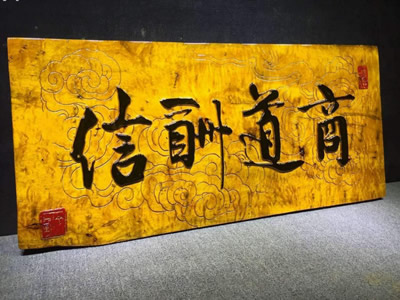 商道酬信